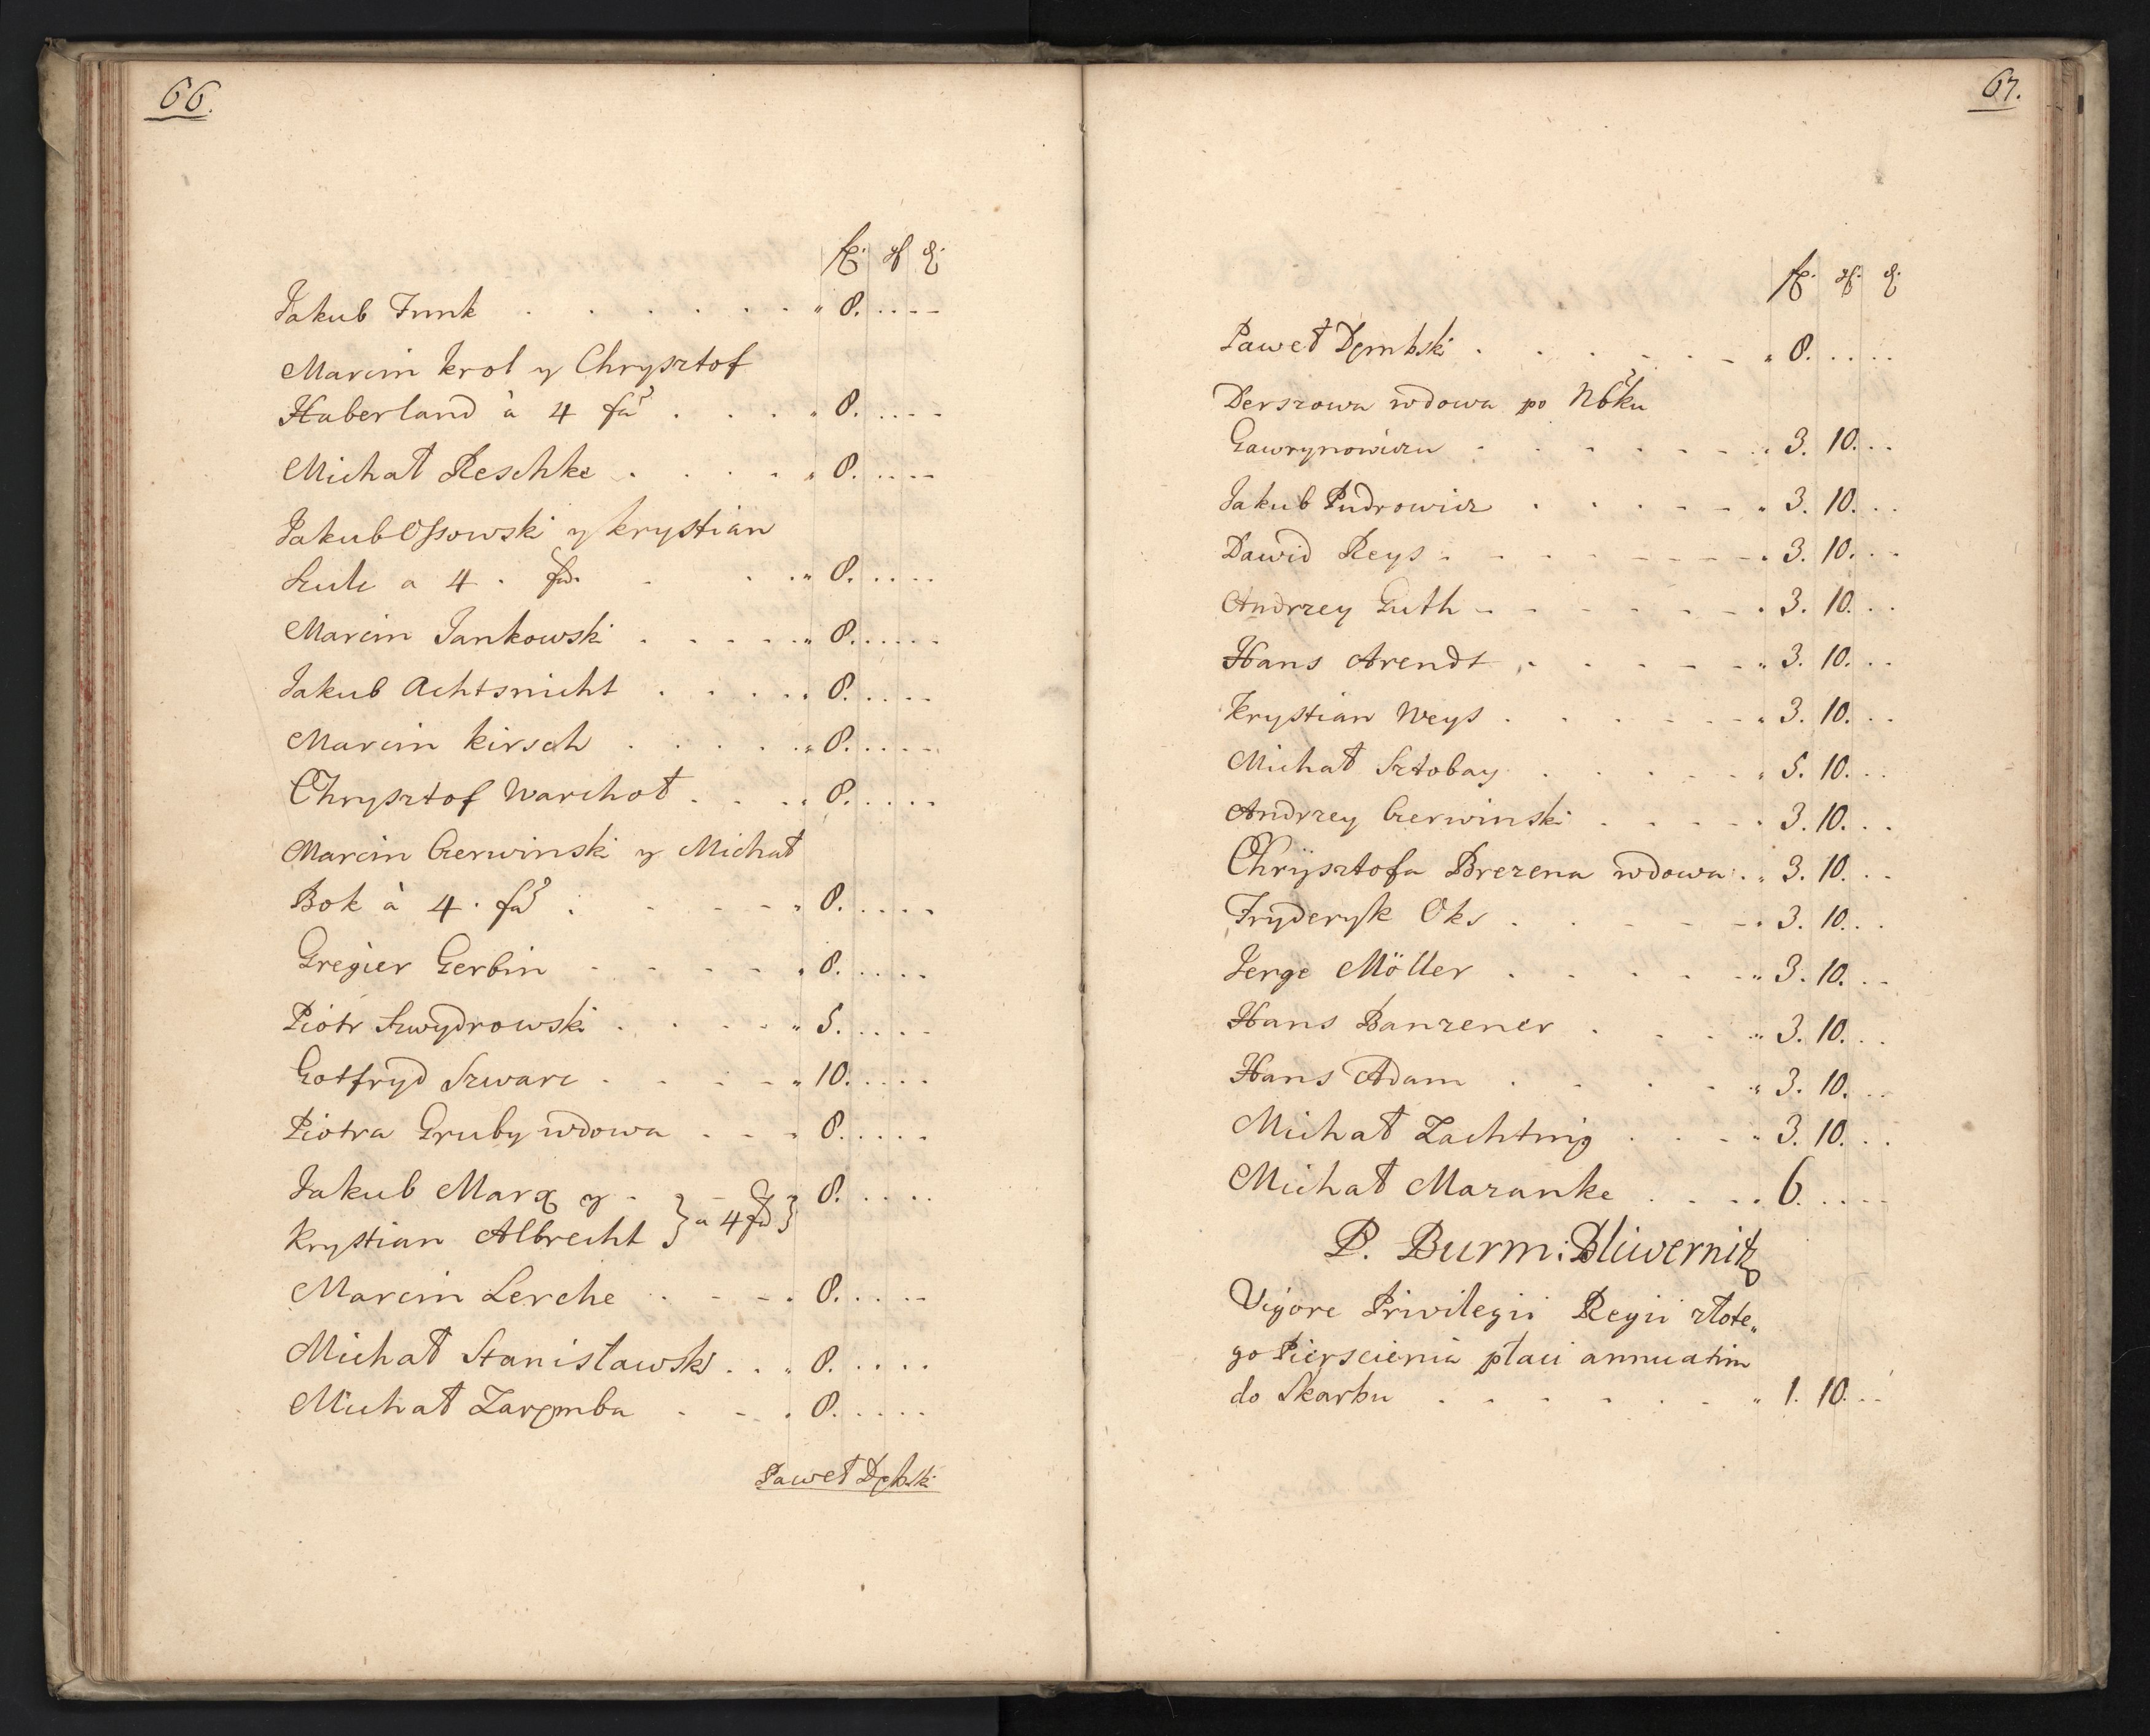 66.
fl. gl. d.
Jakub Funk . . . . . . . „ 8. . . - -
Marcin Krol y Chrysztof
Haberland à 4 fd . . . . „ 8. . . - -
Michał Reschke . . . . „ 8. . . - -
Jakub Ossowski y Krystian
Szulc a 4 . fd. - . . „ 8. . . . .
Marcin Jankowski . . . . . „ 8. . . . .
Jakub Achtsnicht . . . . „ 8. . . . .
Marcin Kirsch . . . . . „ 8. . . . .
Chrysztof Warchoł . . . . 8. . . . .
Marcin Czerwinski y Michał
Bok à 4 . fd . - - - „ 8. . . . .
Gregier Gerbin - - - - - „ 8. . . . .
Piotr Szwydrowski . . . - „ 5. . . . .
Gotfryd Szwarc . . . - „ 10. . . . .
Piotra Gruby wdowa . . - . 8. . . . .
Jakub Marx y - } - } 8. . . . .
Krystian Albrecht } a 4 fd }
Marcin Lerche . - - . 8. . . . .
Michał Stanisławski . . „ 8. . . . .
Michał Zaręmba . - . . 8. . . . .
Paweł Dębski
67.
fl. gl. d.
Paweł Dęmbski . . . . . - „ 8. . . . .
Derszowa wdowa po Nbku
Gawrynowiczu - . . - - - . 3. 10. . .
Jakub Pudrowicz . . . . - - „ 3. 10. . .
Dawid Reys . - - - - - - „ 3. 10. . .
Andrzey Guth - - - - - - . 3. 10. . .
Hans Arendt . . . - - - „ 3. 10. . .
Krystian Weys . . . . . - - „ 3. 10. . .
Michał Sztobay . . . . - - „ 5. 10. . .
Andrzey Czerwinski . . - - - . 3. 10. . .
Chrÿsztofa Brezena wdowa . „ 3. 10. . .
Fryderyk Oks . . . - - - . 3. 10. . .
Jerge Möller . . . . . - „ 3. 10. . .
Hans Banzener . . . - „ 3. 10. . .
Hans Adam . . . . - „ 3. 10. . .
Michał Zachtnig . . . - „ 3. 10. . .
Michał Mazanke . . . . 6. . . . .
P. Burm: Bliwernitz
Vigore Privilegii Regii złote„
go Pierscienia płaci annuatim
do Skarbu . . . . . . „ 1. 10. . .